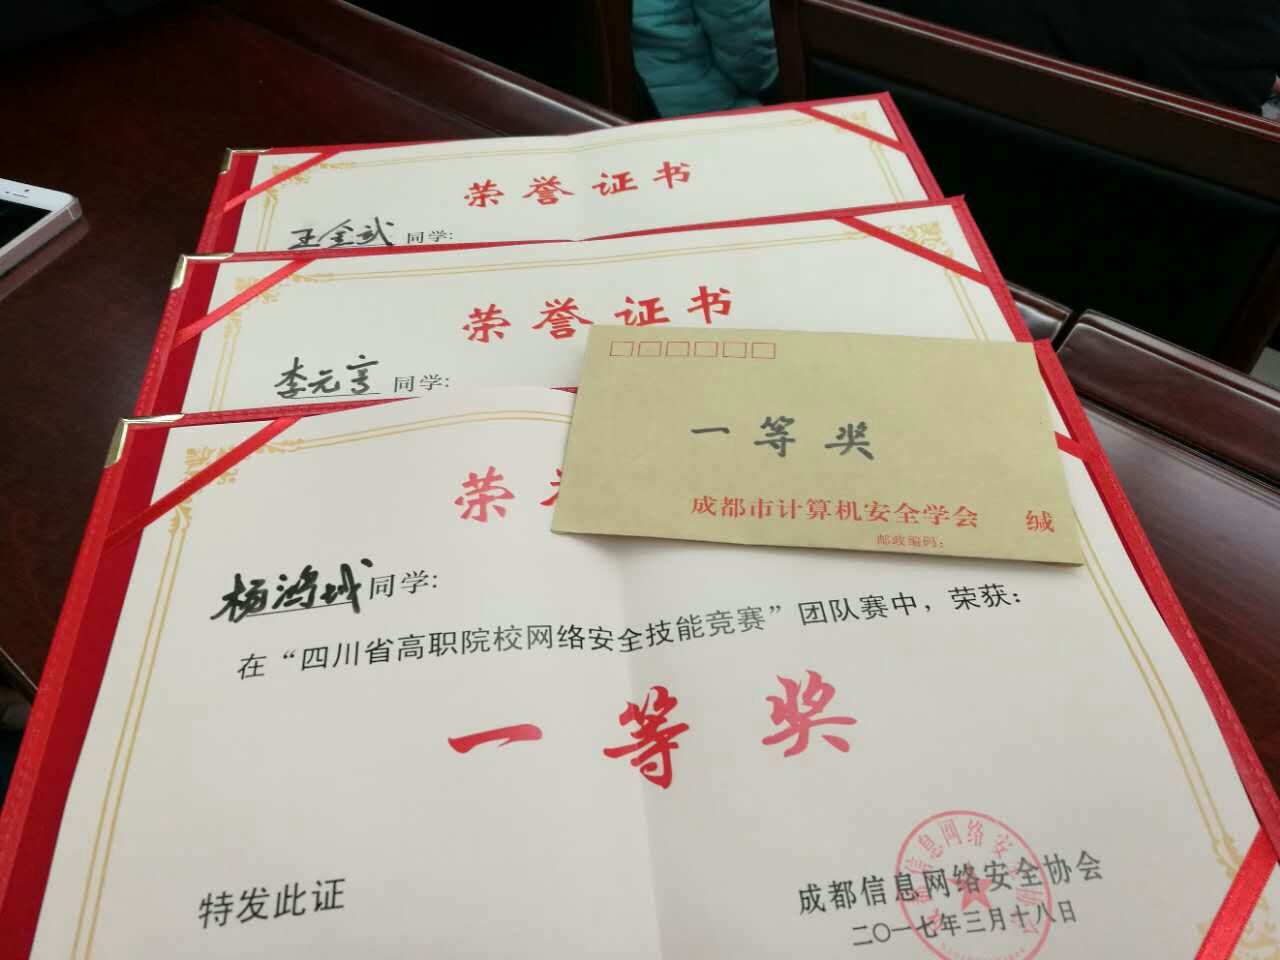 荣誉证书
王金武 同学:
荣誉证书
李元亨 同学:
一等奖
成都市计算机安全学会 缄
邮政编码:
荣
杨鸿城 同学:
在“四川省高职院校网络安全技能竞赛”团队赛中，荣获:
一等奖
特发此证
成都信息网络安全协会
二〇一七年三月十八日